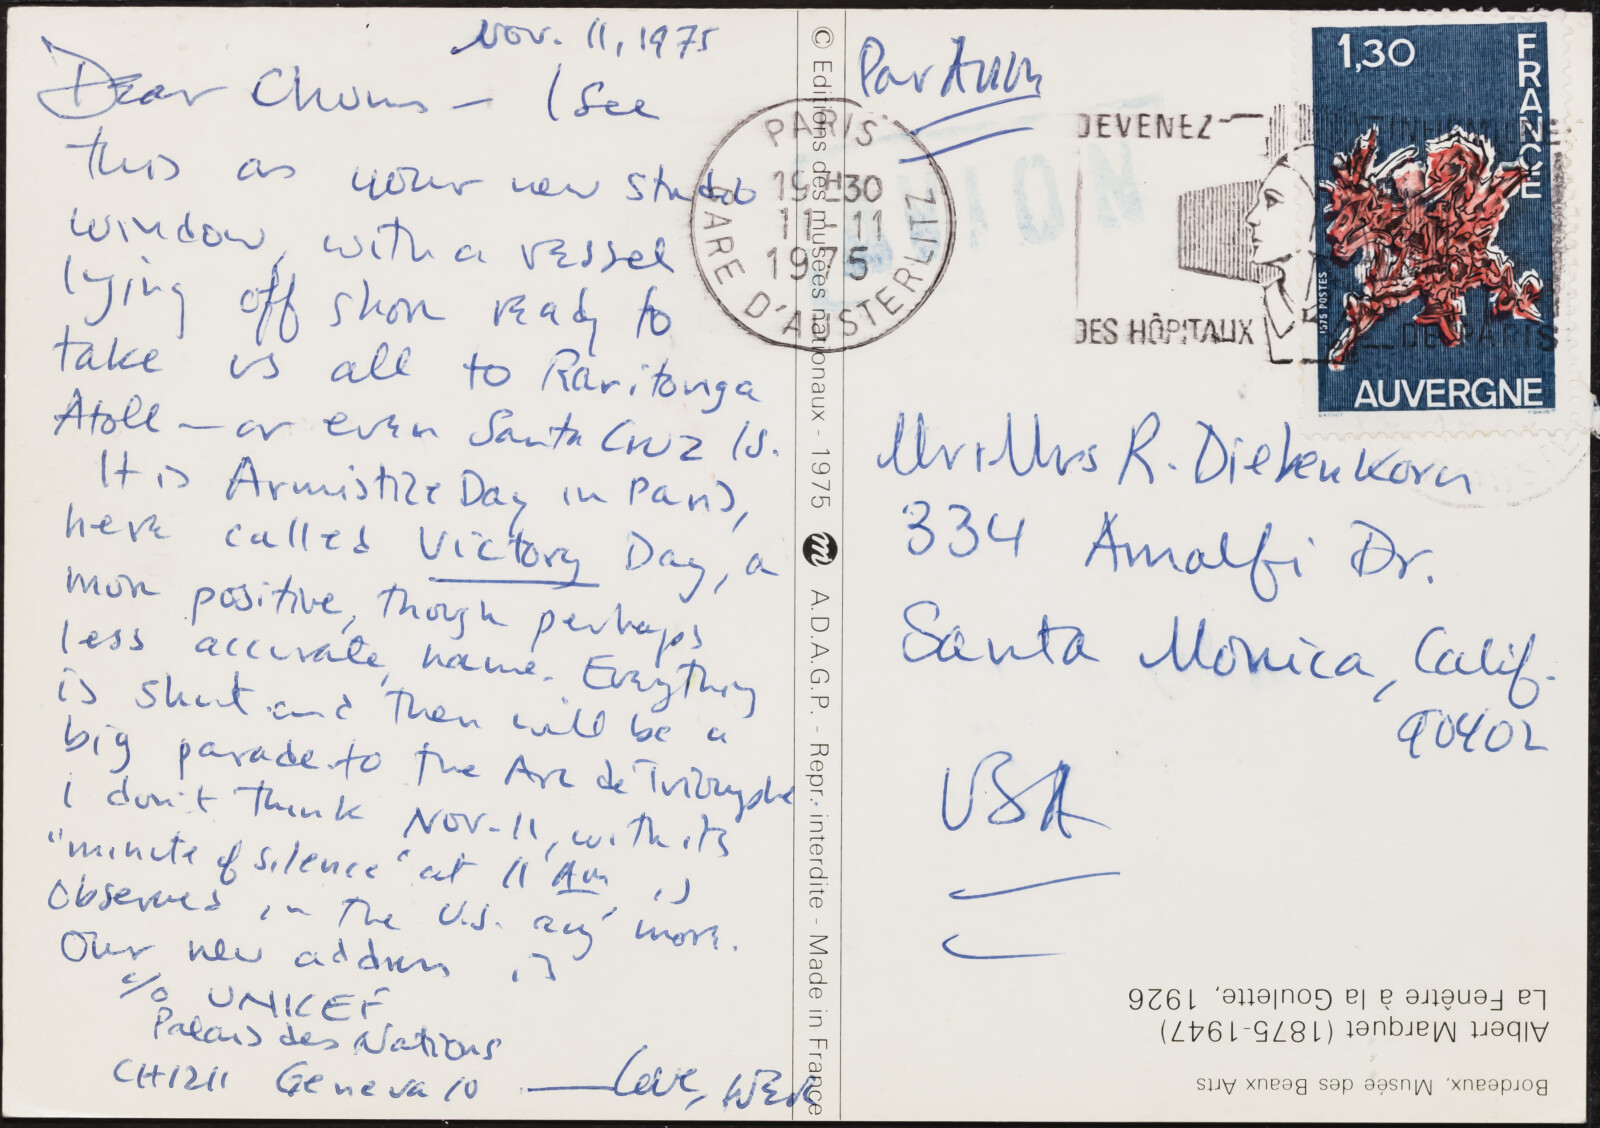 Nov. 11, 1975
Dear Chums — I see
this as your new studio
window, with a vessel
lying off shore ready to
take us all to Raritonga
Atoll — or even Santa Cruz Is.
It is Armistice Day in Paris,
here called Victory Day, a
more positive, though perhaps
less accurate, name. Everything
is shut and there will be a
big parade to the Arc de Triomphe
I don't think Nov-11, with its
"minute of silence" at 11 AM, is
observed in the U.S. any more.
Our new address is
c/o UNICEF
Palais des Nations
CH1211 Geneva 10 — Love,
© Editions des musées nationaux - 1975 m A.D.A.G.P. - Repr. interdite - Made in France
Par Avion
PARIS
19H30
11-11
1975
GARE D'AUSTERLITZ
AVION
DEVENEZ
INFIRMIERE
DES HÔPITAUX
DE PARIS
1,30
FRANCE
1975 POSTES
AUVERGNE
Mr & Mrs R. Diebenkorn
334 Amalfi Dr.
Santa Monica, Calif.
90402
USA
Albert Marquet (1875-1947)
La Fenêtre à la Goulette, 1926
Bordeaux, Musée des Beaux Arts